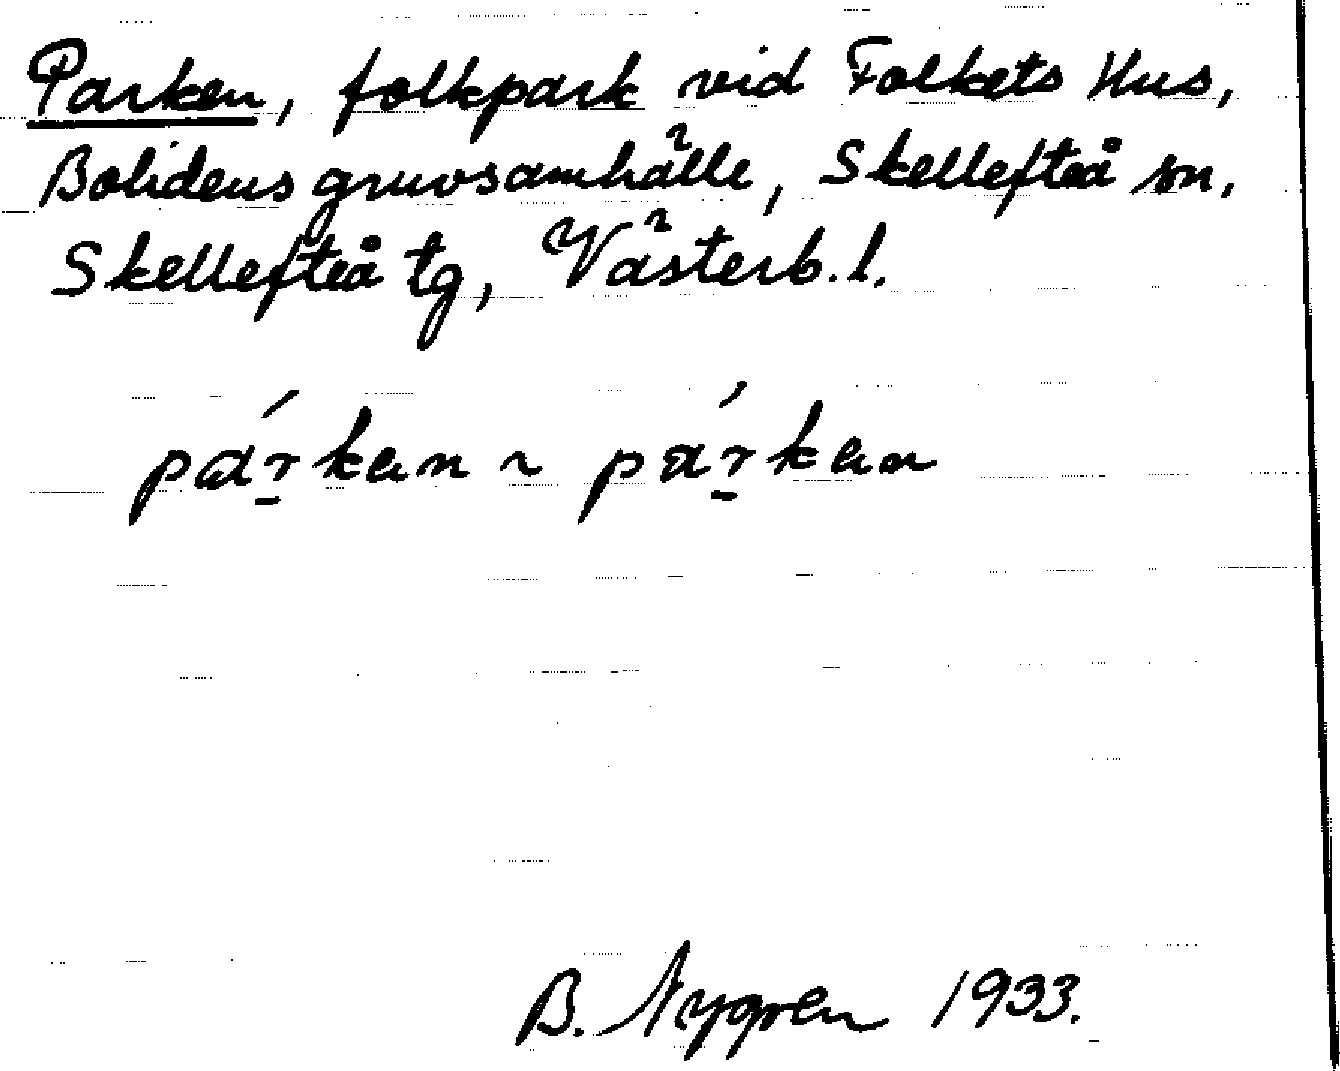 Parken, folkpark vid Folkets Hus,
Bolidens gruvsamhälle, Skellefteå sn,
Skellefteå tg, Västerb. l.
pár̠ken ~ pár̠ken
B. Nygren 1933.